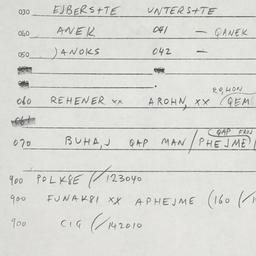 030 EJBERSTTE UNTERSTTE
040 ANEK 041 — QANEK
050 JANOKS 042 —
RQHON
060 REHENER xx AROHN, xx (QEM
070 BUHA,J QAP MAN / PHEJME)
900 POLK8E (/123040
900 FUNAK8I xx APHEJME (160 (/1
900 CIG (/142010